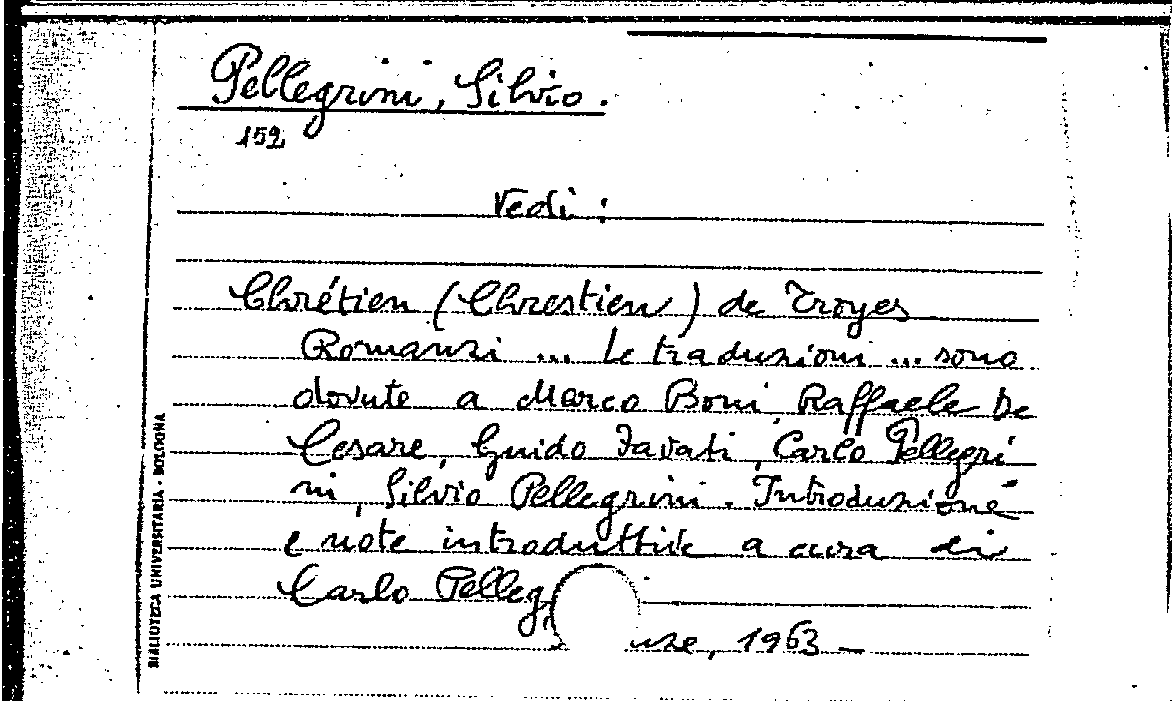 Pellegrini, Silvio.
152
Vedi:
Chrétien (Chrestien) de Troyes
Romanzi ... Le traduzioni ... sono
dovute a Marco Boni, Raffaele De
Cesare, Guido Favati, Carlo Pellegri
ni, Silvio Pellegrini. Introduzione
e note introduttive a cura di
Carlo Pelleg
1963 -
BIBLIOTECA UNIVERSITARIA - BOLOGNA